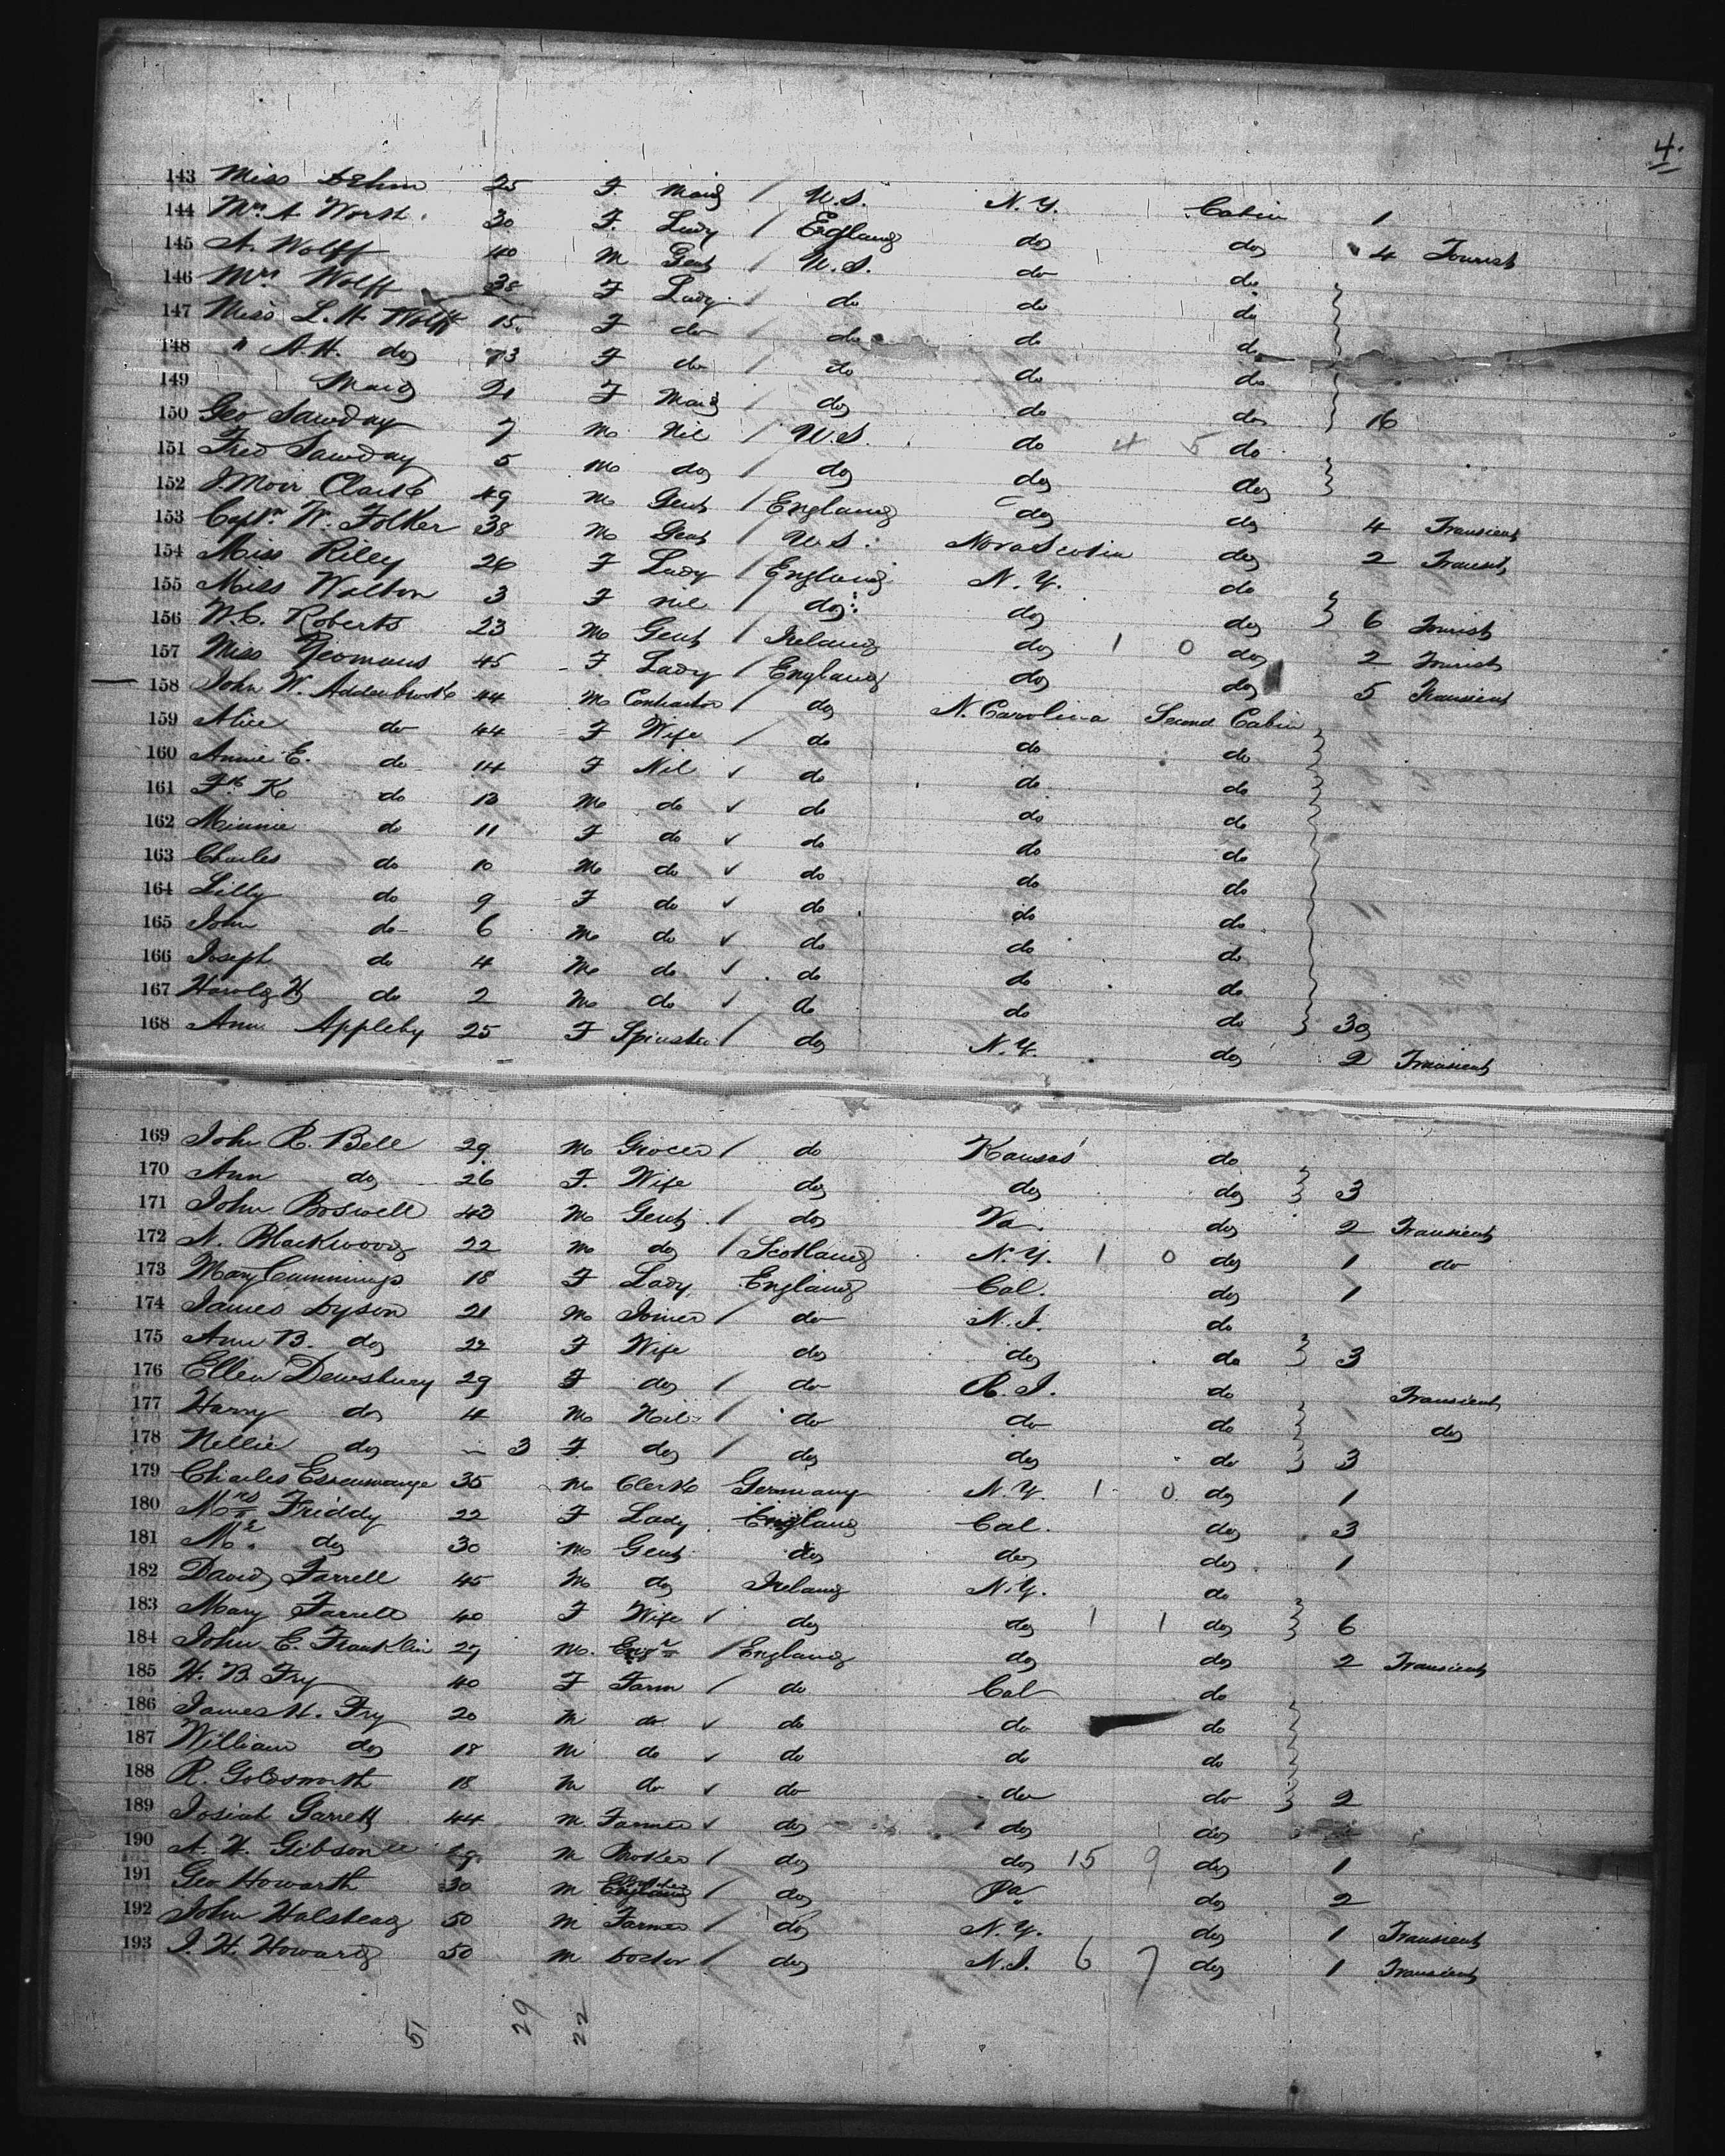 4.
143 Miss Dehm 25 F. Maid / U.S. N.Y. Cabin 1
144 Mrs A Worst 30 F. Lady / England do do 4 Tourist
145 A. Wolff 40 M Gent / U.S. do do
146 Mrs Wolff 38 F Lady do do do
147 Miss L.H. Wolff 15 F do / do do do
148 " A.H. do 13 F do / do do do
149 Maid 21 F Maid / do do do 16
150 Geo Sawday 7 M Nil / U.S. do 4 5 do
151 Fred Sawday 5 M do / do do do
152 J. Moir Clark 49 M Gent / England do do 4 Transient
153 Captn W. Folker 38 M Gent / U.S. Nova Scotia do 2 Transt
154 Miss Rilly 26 F Lady / England N.Y. do
155 Miss Walton 3 F nil / do do do 6 Tourist
156 W.C. Roberts 23 M Gent / Ireland do 1 0 do 2 Tourist
157 Miss Yeomans 45 F Lady / England do do 5 Transient
158 John W. Addenbrook 44 M Contractor / do N. Carolina Second Cabin
159 Alice do 44 F Wife / do do do
160 Annie E. do 14 F Nil ✓ do do do
161 Fk K do 13 M do ✓ do do do
162 Minnie do 11 F do ✓ do do do
163 Charles do 10 M do ✓ do do do
164 Lilly do 9 F do ✓ do do do
165 John do 6 M do ✓ do do do
166 Joseph do 4 M do ✓ do do do
167 Harold H do 2 M do ✓ do do do 30
168 Ann Appleby 25 F Spinster / do N.Y. do 2 Transient
169 John R. Bell 29 M Grocer / do Kansas do
170 Ann do 26 F. Wife do do do 3
171 John Boswell 43 M Gent / do Va. do 2 Transient
172 N. Blackwood 22 M do / Scotland N.Y. 1 0 do 1 do
173 Mary Cummings 18 F Lady England Cal. do 1
174 James Dyson 21 M Joiner / do N.J. do
175 Ann B. do 22 F Wife do do do 3
176 Ellen Dewsbury 29 F do / do R.I. do Transient
177 Harry do 4 M Nil / do do do do
178 Nellie do 3 F. do / do do do 3
179 Charles 35 M Clerk Germany N.Y. 1 0 do 1
180 Mrs Friddy 22 F Lady England Cal. do 3
181 Mr. do 30 M Gent do do do 1
182 David Farrell 45 M do Ireland N.Y. do
183 Mary Farrell 40 F Wife ✓ do do 1 1 do 6
184 John E. Franklin 27 M. Engr / England do do 2 Transient
185 H.B. Fry 40 F Farm / do Cal do
186 James H. Fry 20 M do ✓ do do do
187 William do 18 M do ✓ do do do
188 R. Goldsworth 18 M do ✓ do do do 2
189 Josiah Garrett 44 M Farmer ✓ do do do
190 A. H. Gibson 29 M Broker / do do 15 9 do 1
191 Geo Howarth 30 M England / do Pa do 2
192 John Halstead 50 M Farmer / do N.Y. do 1 Transient
193 J. H. Howard 50 M Doctor / do N.J. 6 7 do 1 Transient
51 29 22